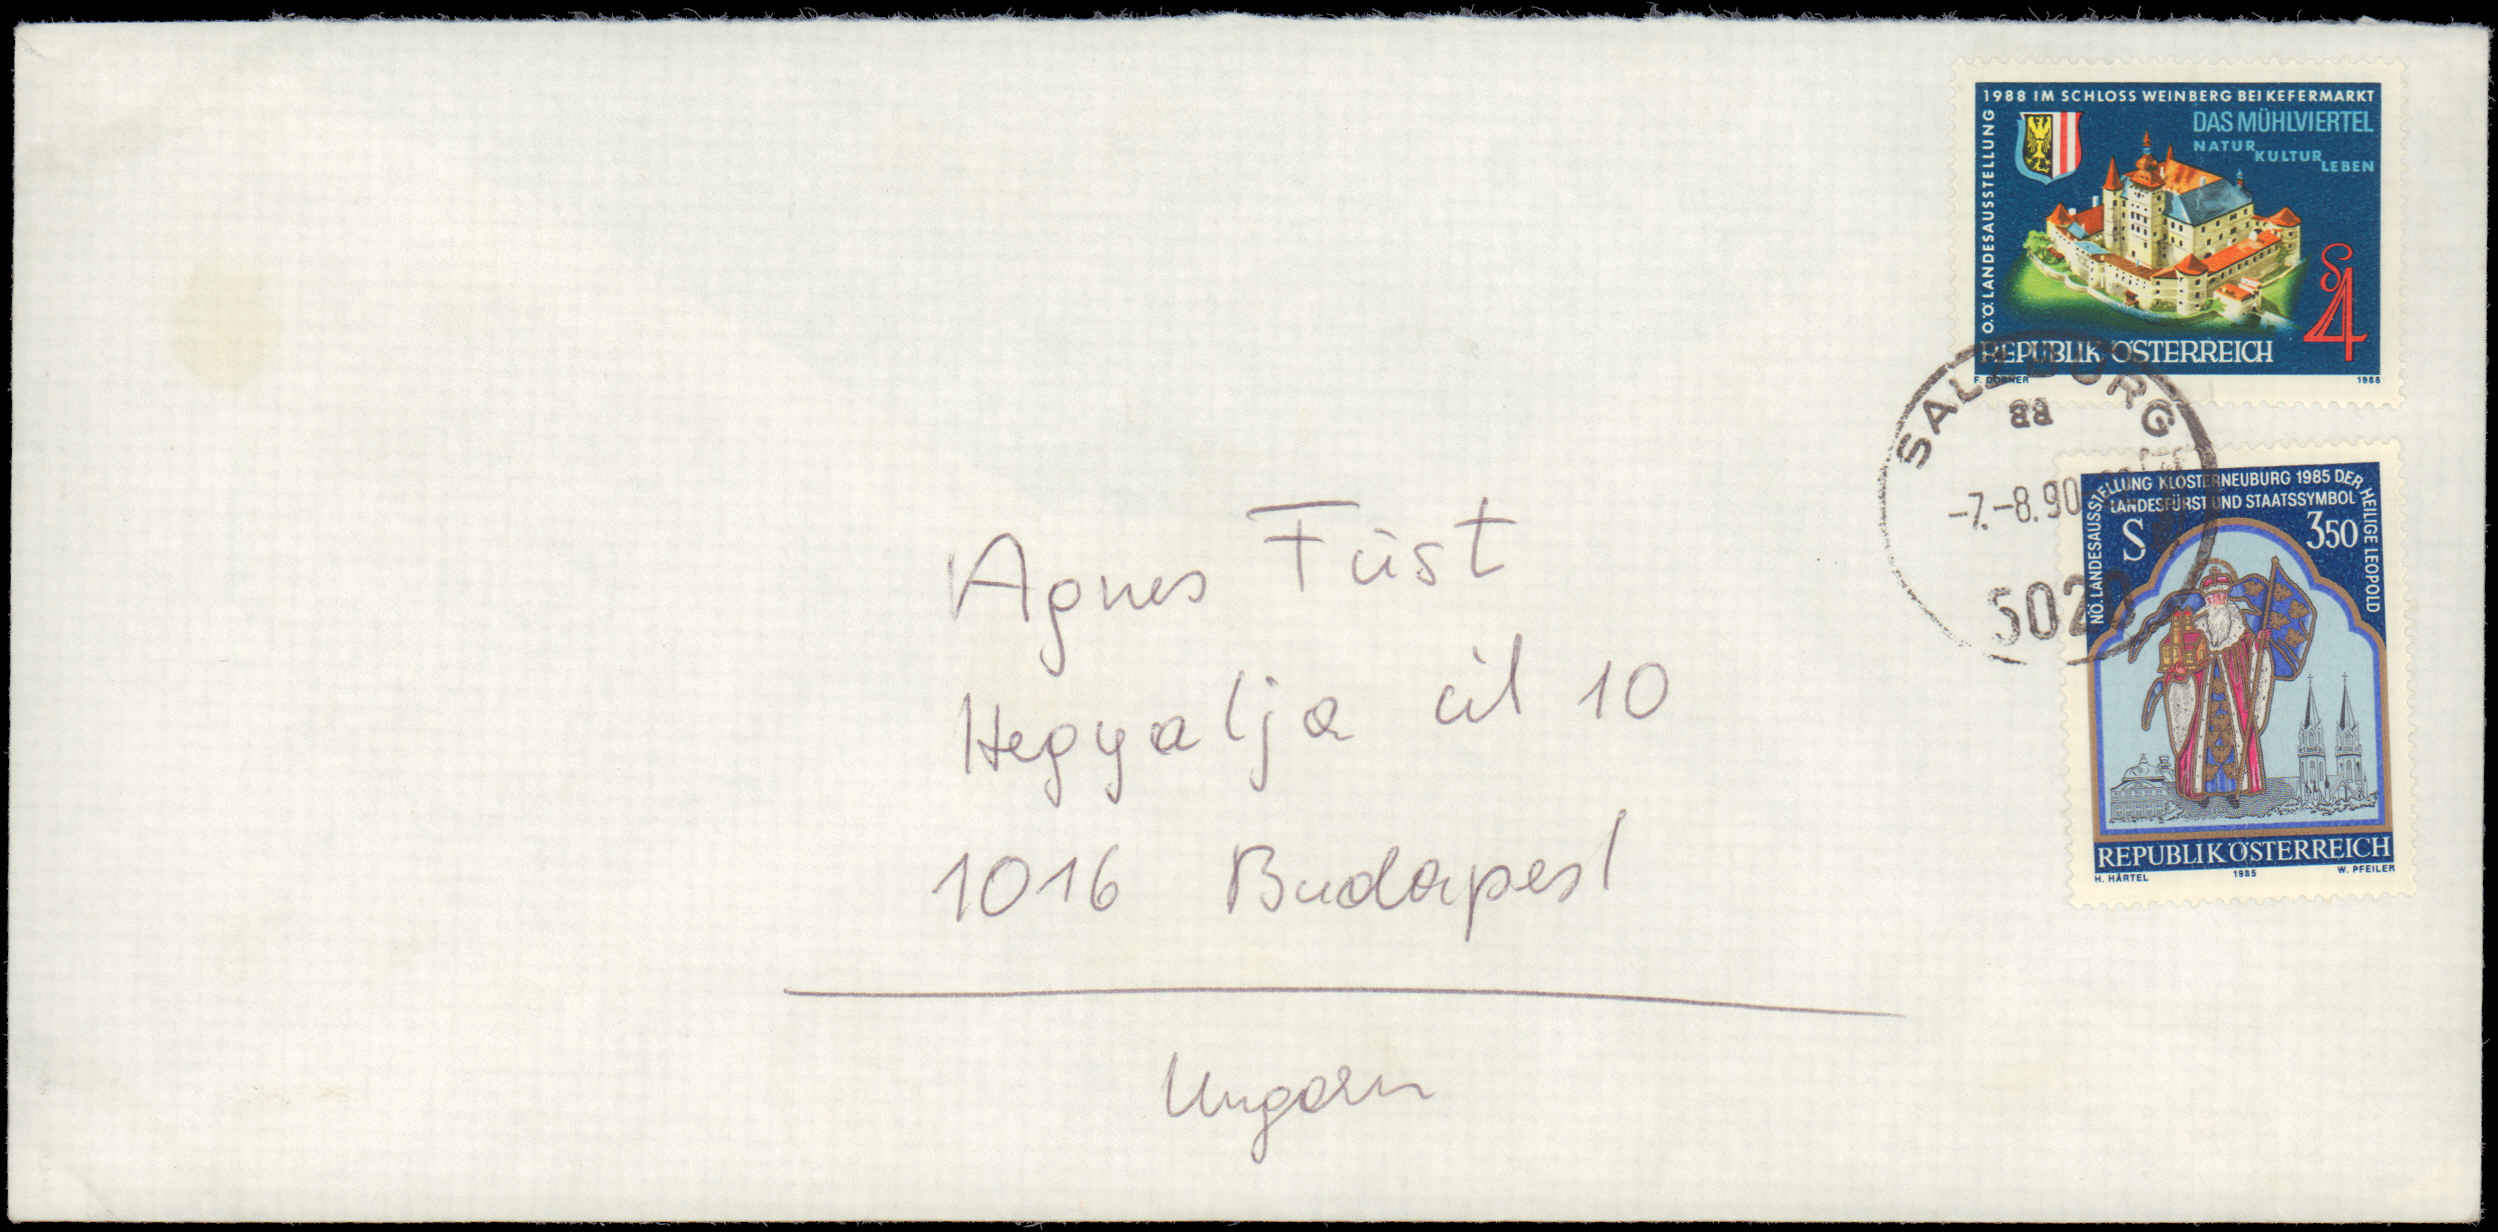 1988 IM SCHLOSS WEINBERG BEI KEFERMARKT
O.Ö. LANDESAUSSTELLUNG
DAS MÜHLVIERTEL
NATUR
KULTUR
LEBEN
S 4
REPUBLIK ÖSTERREICH
F. DORNER 1988
SALZBURG
aa
-7.-8.90
5020
NÖ. LANDESAUSSTELLUNG KLOSTERNEUBURG 1985 DER HEILIGE LEOPOLD
LANDESFÜRST UND STAATSSYMBOL
S 350
REPUBLIK ÖSTERREICH
H. HÄRTEL 1985 W. PFEILER
Agnes Füst
Hegyalja út 10
1016 Budapest
Ungarn